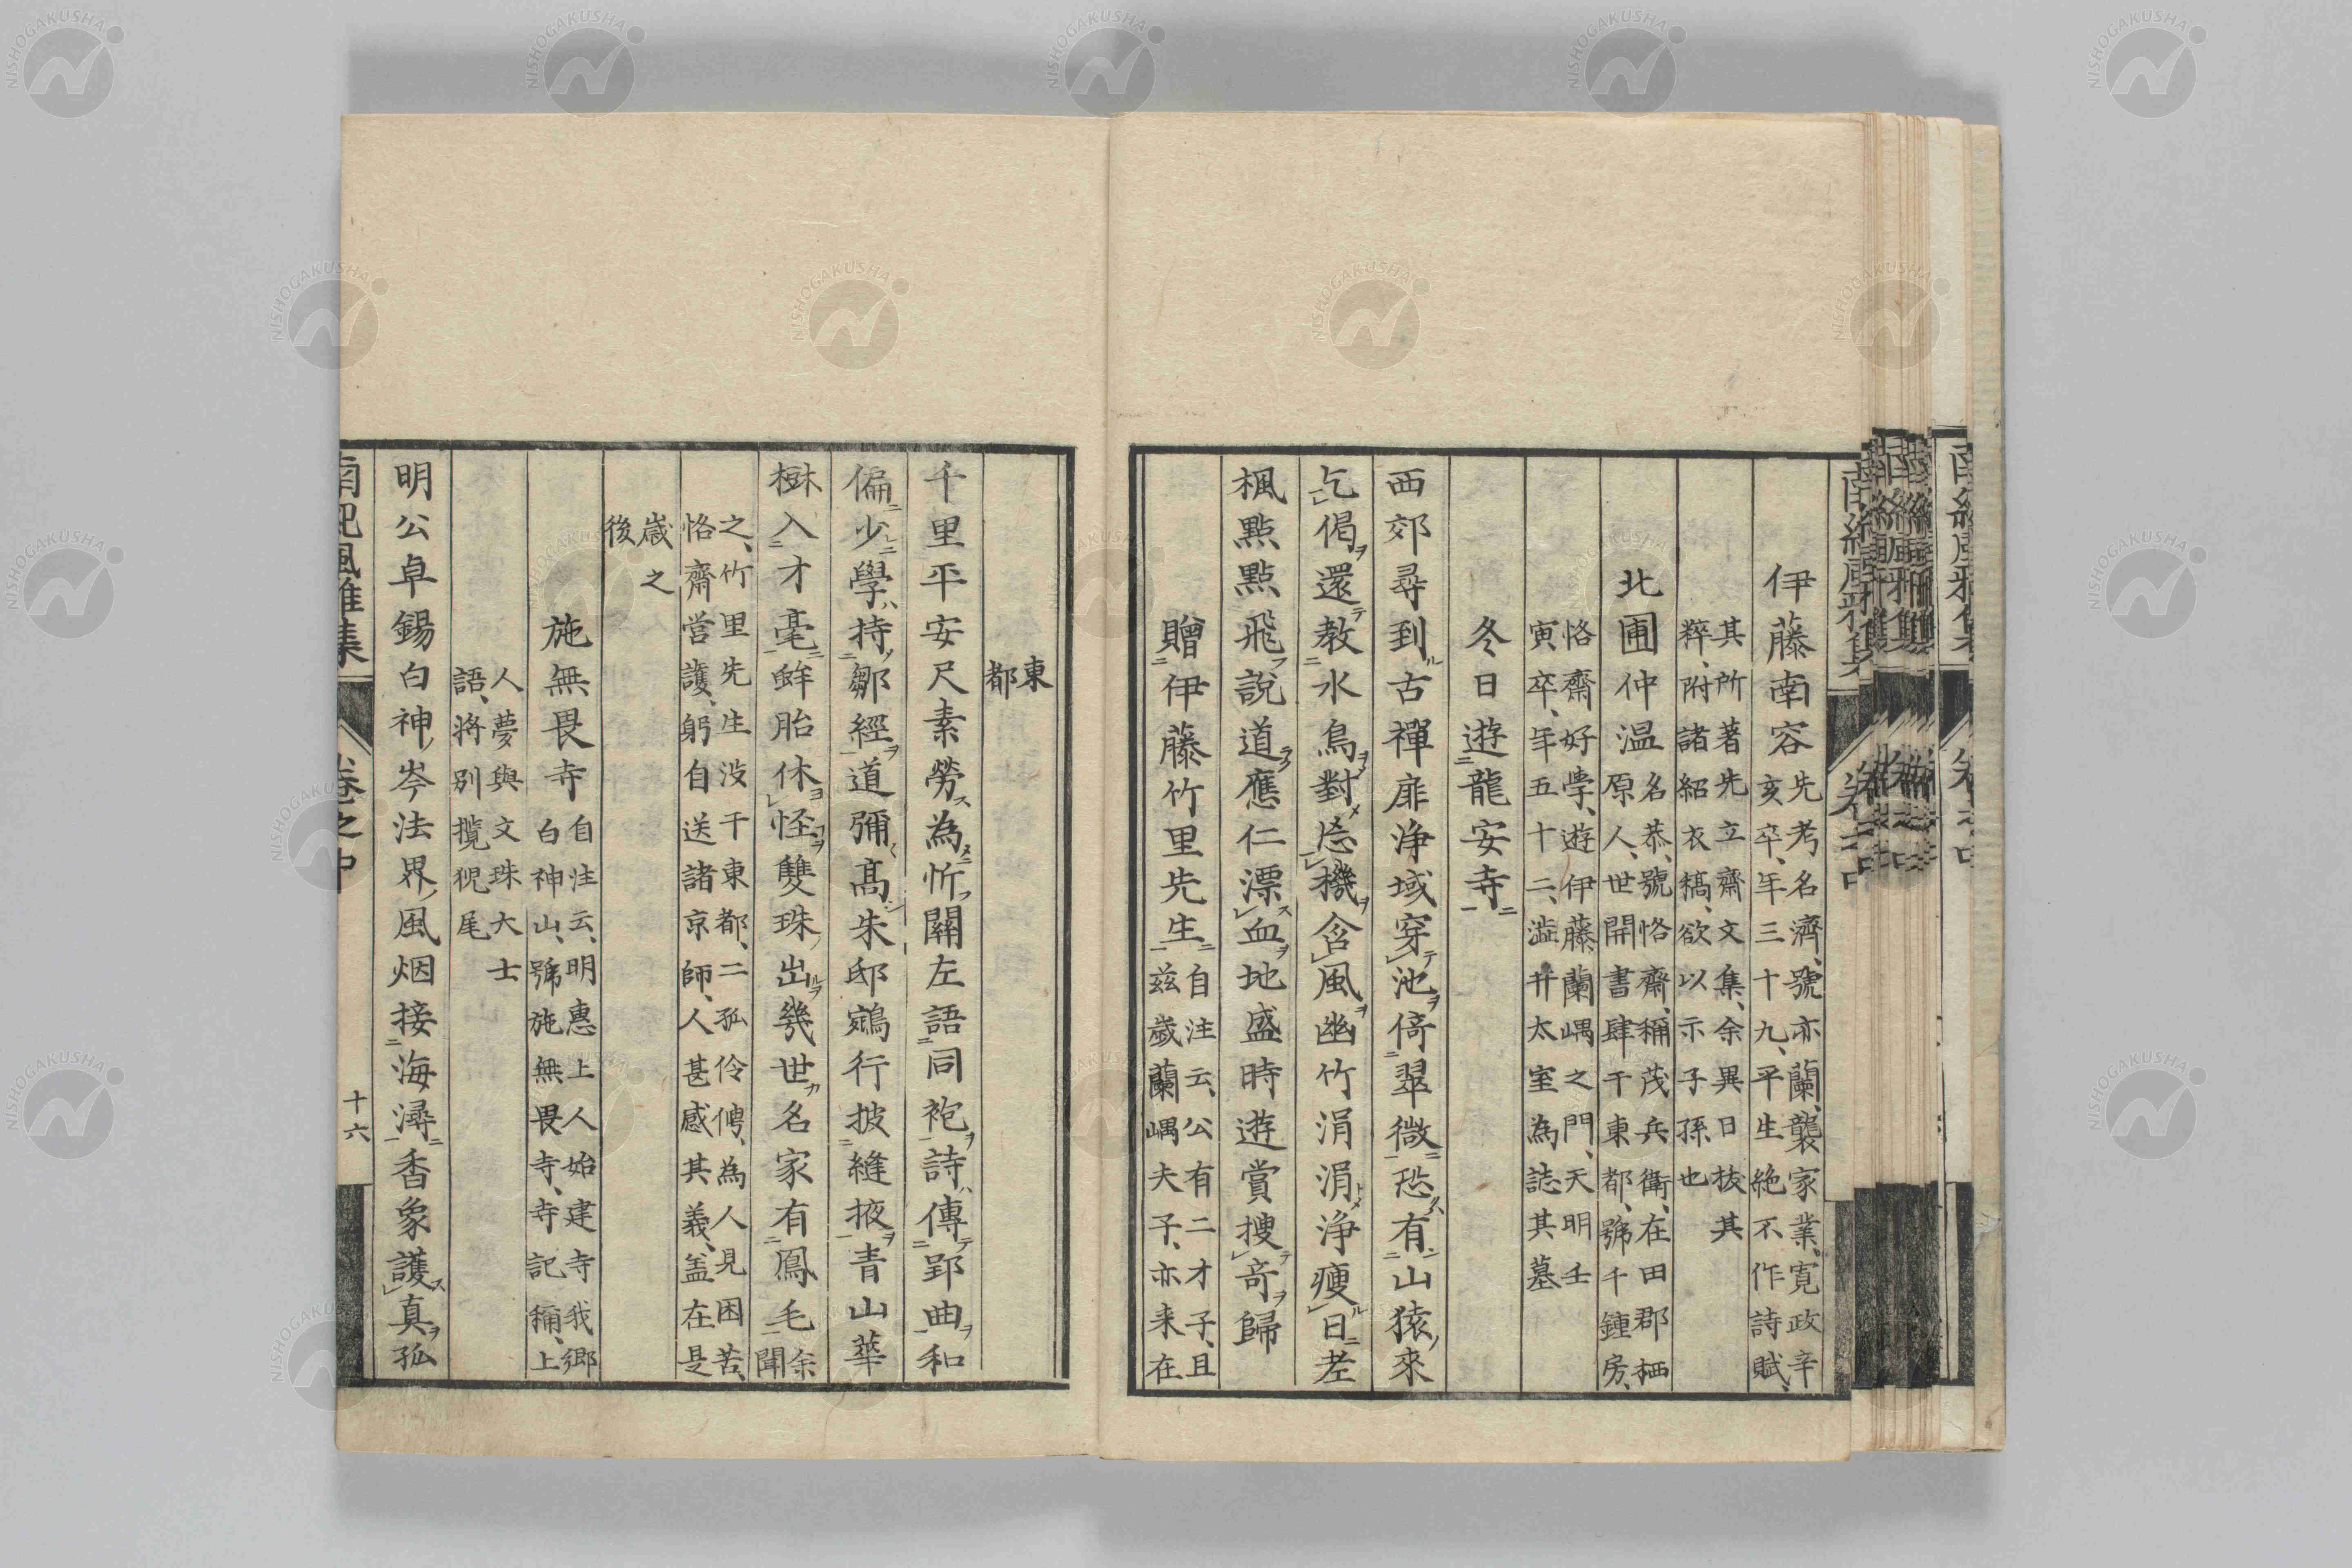 伊藤南容先考名濟、號亦蘭、襲家業、寛政辛
亥卒、年三十九、平生絶不作詩賦、
其所著先立齋文集、余異日抜其
粹、附諸紹衣稿、欲以示子孫也
北圃仲温名恭、號恪齋、稱茂兵衛、在田郡栖
原人、世開書肆于東都、號千鍾房、
恪齋好學、遊伊藤蘭嵎之門、天明壬
寅卒、年五十二、澁井太室為誌其墓
冬日遊龍安寺
西郊尋到古禪扉浄域穿池倚翠微恐有山猿來
乞偈還教水鳥對忘機含風幽竹涓涓浄痩日老
楓點點飛説道應仁漂血地盛時遊賞捜奇歸
贈伊藤竹里先生自注云、公有二才子、且
茲歳蘭嵎夫子、亦来在
東
都
千里平安尺素勞為忻關左語同袍詩傳郢曲和
偏少學持鄒經道彌髙朱邸鵷行披縫掖青山華
樹入才毫蚌胎休怪雙珠出幾世名家有鳳毛余
聞
之、竹里先生没于東都、二孤伶俜、為人見困苦、
恪齋嘗護、躬自送諸京師、人甚感其義、盖在是
歳之
後
施無畏寺自注云、明惠上人始建寺我郷
白神山、號施無畏寺、寺記稱、上
人夢與文珠大士
語、將別攬猊尾
明公卓錫白神岑法界風烟接海潯香象護真孤
南紀風雅集
卷之中
十六